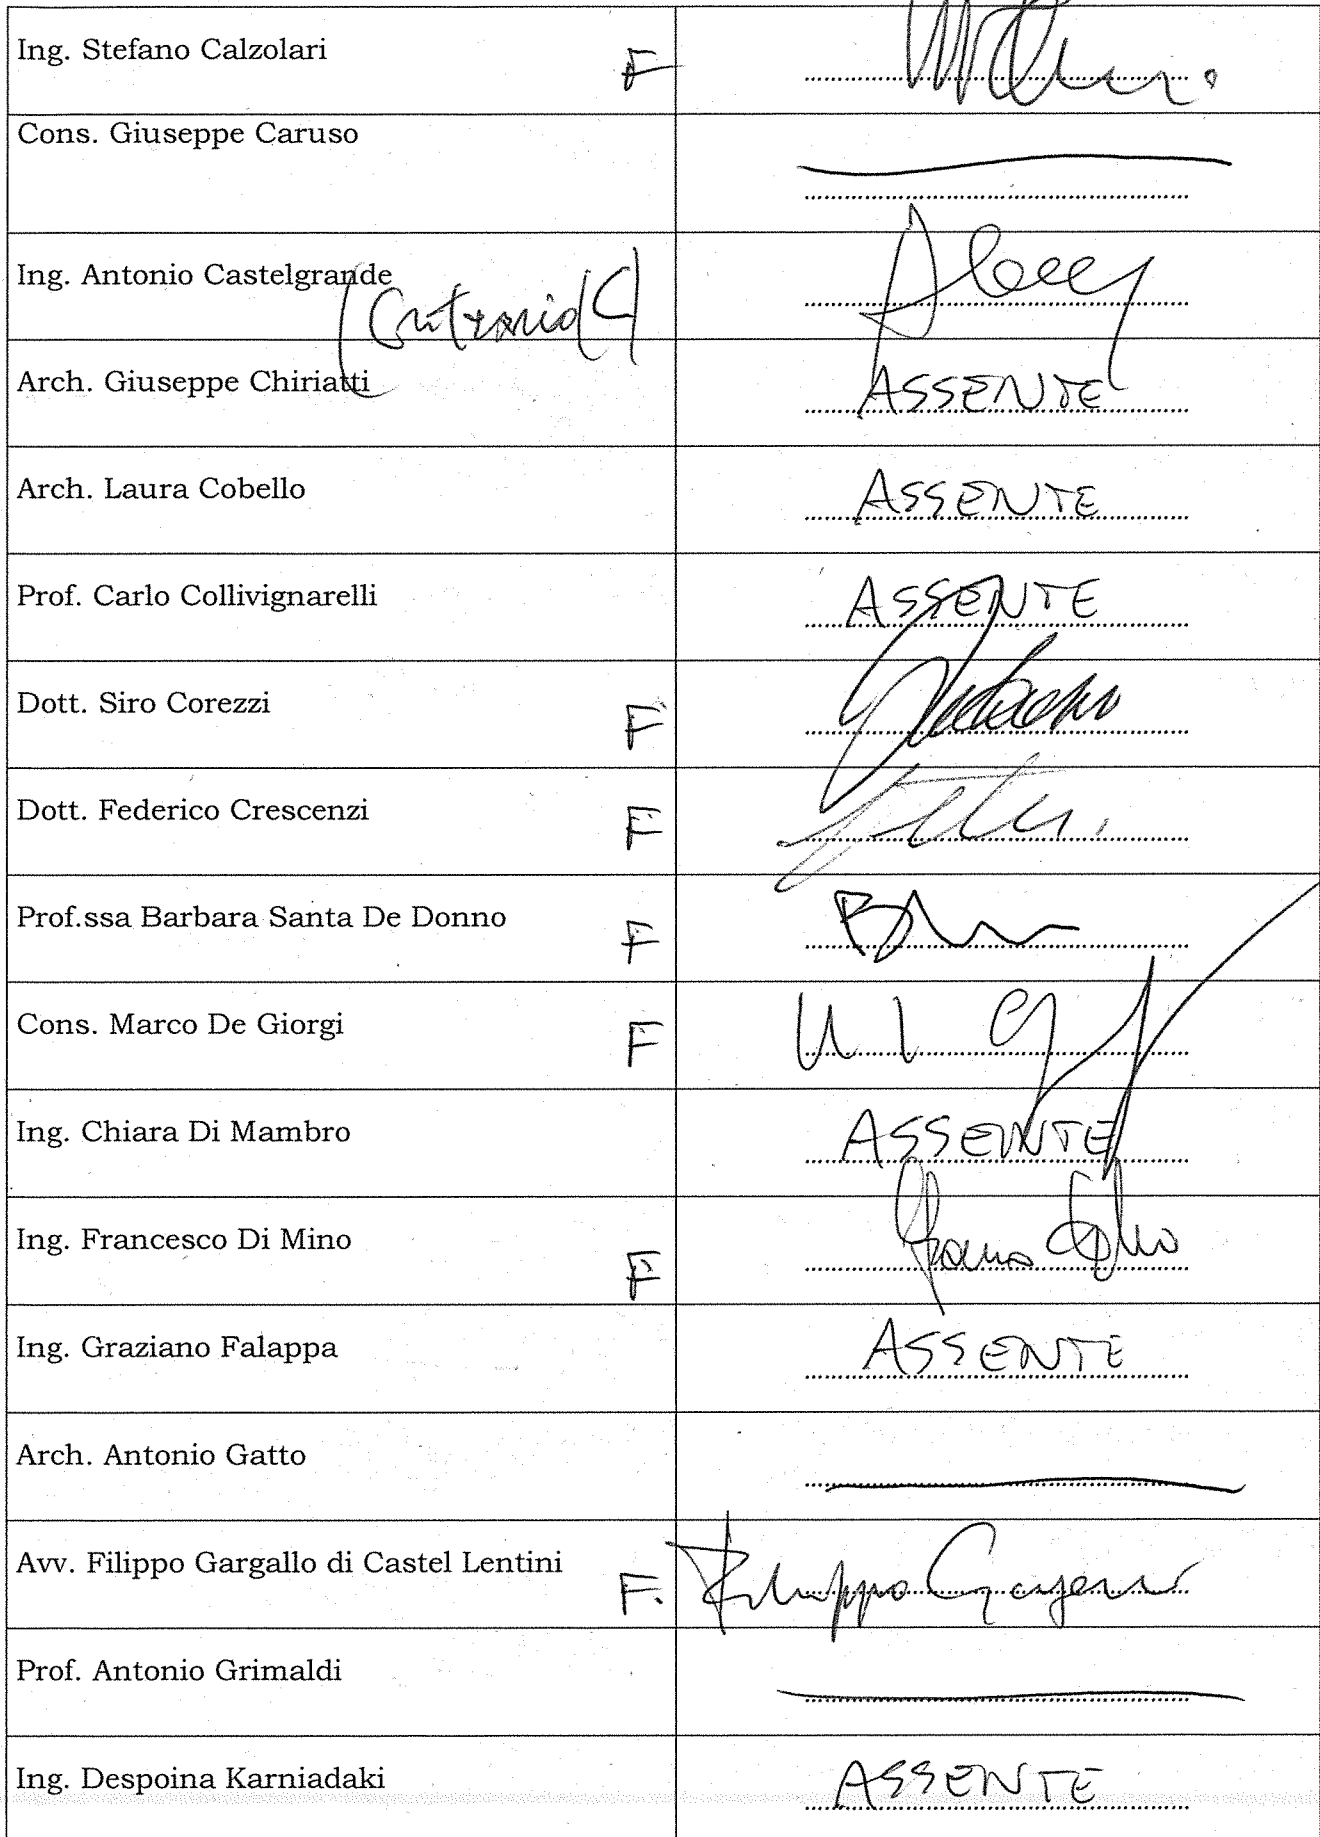 Ing. Stefano Calzolari F
Cons. Giuseppe Caruso
Ing. Antonio Castelgrande
(Contrario)
Arch. Giuseppe Chiriatti ASSENTE
Arch. Laura Cobello ASSENTE
Prof. Carlo Collivignarelli ASSENTE
Dott. Siro Corezzi F
Dott. Federico Crescenzi F
Prof.ssa Barbara Santa De Donno F
Cons. Marco De Giorgi F
Ing. Chiara Di Mambro ASSENTE
Ing. Francesco Di Mino F
Ing. Graziano Falappa ASSENTE
Arch. Antonio Gatto
Avv. Filippo Gargallo di Castel Lentini F. Filippo Gargallo
Prof. Antonio Grimaldi
Ing. Despoina Karniadaki ASSENTE